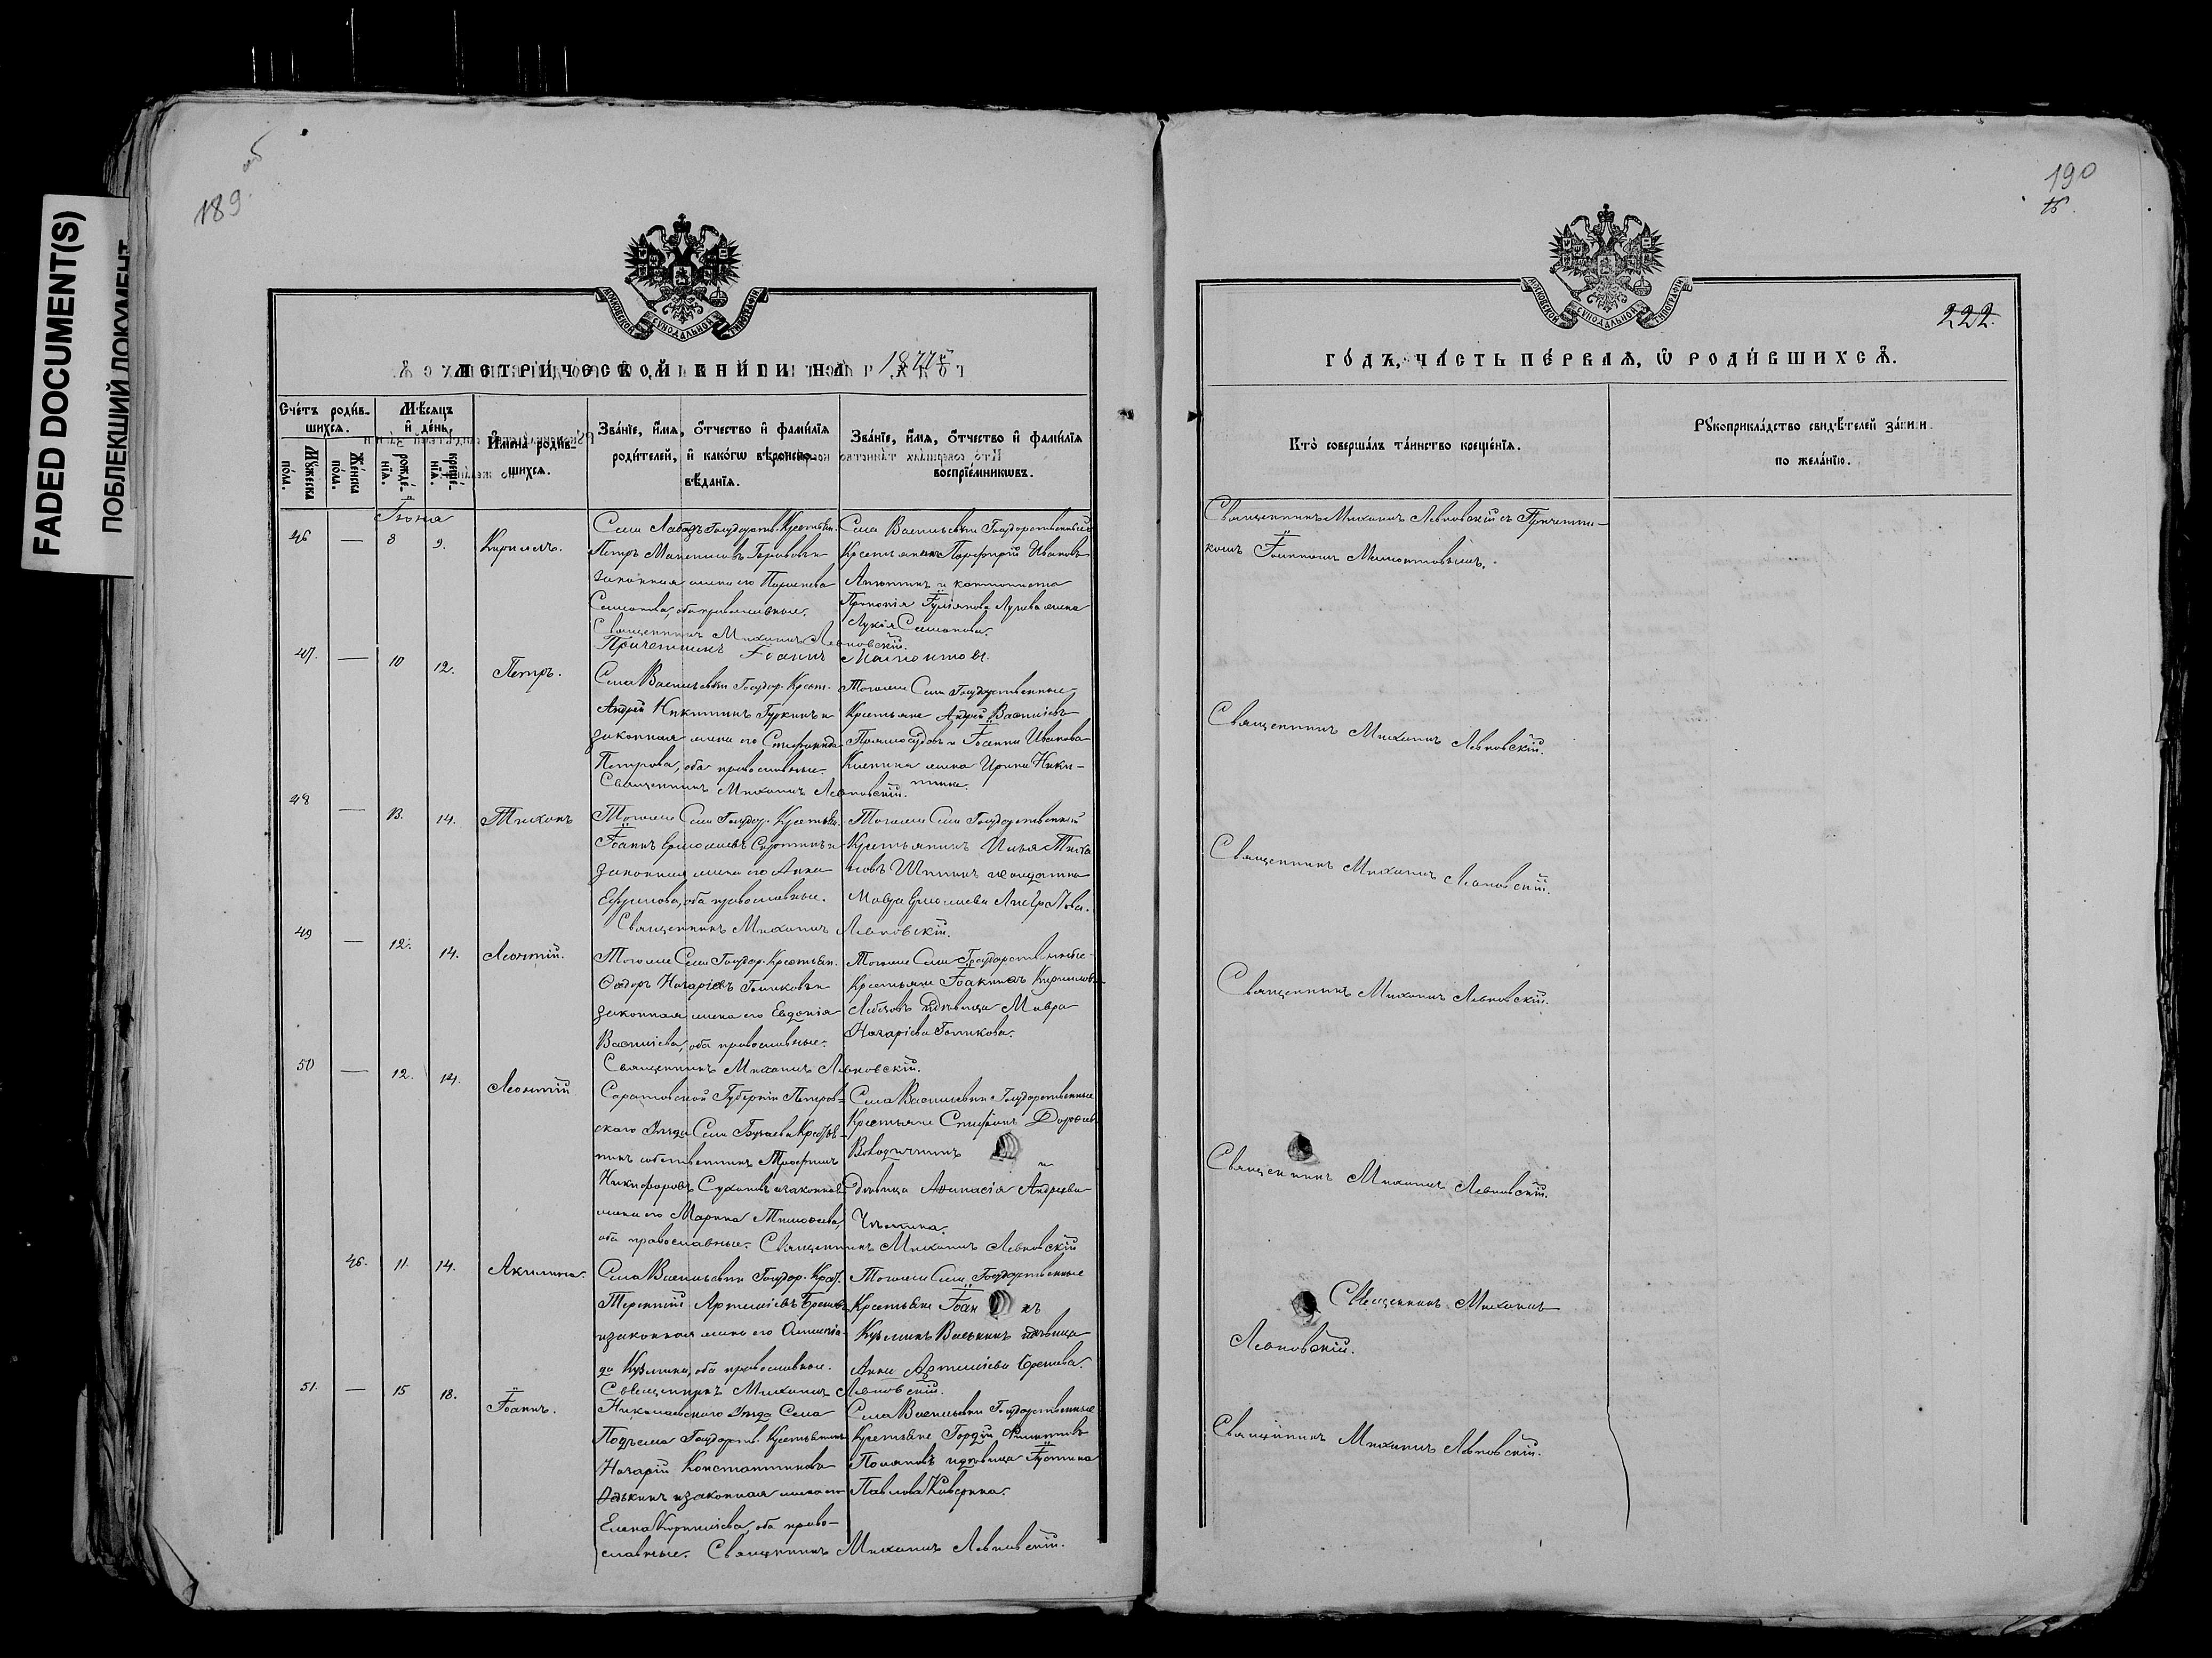 FADED DOCUMENT(S)
ПОБЛЕКШИЙ ДОКУМЕНТ
189 об
МОСКОВСКОЙ СѴНОДАЛЬНОЙ ТИПОГРАФІИ
МЕТРИЧЕСКОЙ КНИГИ НА 1877й
Сче́тъ роди́в-
шихсѧ.
Мѣ́сѧцъ
и҆ де́нь.
Мꙋ́жеска по́ла.
Же́нска по́ла.
рожде́-
нїѧ.
креще́-
нїѧ.
И҆мена̀ роди́в-
шихсѧ.
Зва́нїе, и҆́мѧ, ѻ҆́тчество и҆ фами́лїѧ
роди́телей, и҆ како́гѡ вѣроисповѣ́данїѧ.
Зва́нїе, и҆́мѧ, ѻ҆́тчество и҆ фами́лїѧ
воспрїе́мникѡвъ.
Іюня
46 — 8 9. Кириллъ.
Села Лабазъ Государств. Крестьян.
Петръ
законная жена его
Семенова, оба православные.
Священникъ Михаилъ Левковскій.
Причетникъ Іоаннъ Мамонтовъ.
Села Васильевки Государственный
Крестьянинъ Порфирій Ивановъ
жена
Лукія Семенова.
47. — 10 12. Петръ.
Села Васильевки Государ. Крест.
Андрей Никитинъ Гуркинъ и
законная жена его Стефанида
Петрова, оба православные.
Священникъ Михаилъ Левковскій.
Тогоже Села Государственные
Крестьяне Андрей Васильевъ
и Іоанна Иванова
жена Ирина Ники-
тина.
48 — 13. 14. Тихонъ
Тогоже Села Государ. Крестьян.
Іоаннъ Ермолаевъ Сиротинъ и
законная жена его Анна
Ефимова, оба православные.
Священникъ Михаилъ Левковскій.
Тогоже Села Государственный
Крестьянинъ Илья Тихо
новъ Шишинъ и солдатка
Мавра Ермолаева
49 — 12. 14. Леонтій.
Тогоже Села Государ. Крестьян.
Ѳедоръ Назаріевъ Голиковъ и
законная жена его Евдокія
Васильева, оба православные.
Священникъ Михаилъ Левковскій.
Тогоже Села Государственные
Крестьяне Іоакимъ Кирилловъ
и дѣвица Мавра
Назаріева Голикова.
50 — 12. 14. Леонтій
Саратовской Губерніи Петров-
скаго Уѣзда Села Крестья-
нинъ собственникъ Трофимъ
Никифоровъ Сухановъ и законная
жена его Марина Тимоѳеева,
оба православные. Священникъ Михаилъ Левковскій
Села Васильевки Государственные
Крестьяне Стефанъ
и
дѣвица Аѳанасія Андреева
46. 11. 14. Акилина.
Села Васильевки Государ. Крест.
Терентій Артемьевъ
и законная жена его Олимпіа-
да Кузмина, оба православные.
Священникъ Михаилъ Левковскій.
Тогоже Села Государственные
Крестьяне Іоаннъ
Кузминъ Васькинъ и дѣвица
Анна Артемьева
51. — 15 18. Іоаннъ.
Николаевскаго Уѣзда Села
Подъема Государств. Крестьянинъ
Назарій Константиновъ
и законная жена его
Елена, оба право-
славные. Священникъ Михаилъ Левковскій.
Села Васильевки Государственные
Крестьяне Гордій Филипповъ
Поляковъ и дѣвица Іустина
Павлова Каверина.
190
об.
222.
МОСКОВСКОЙ СѴНОДАЛЬНОЙ ТИПОГРАФІИ
ГО́ДЪ, ЧА́СТЬ ПЕ́РВАѦ, Ѡ҆ РОДИ́ВШИХСѦ.
Кто̀ соверша́лъ та́инство креще́нїѧ.
Рꙋкоприкла́дство свидѣ́телей за́писи
по жела́нїю.
Священникъ Михаилъ Левковскій съ Причетни-
комъ Іоанномъ Мамонтовымъ.
Священникъ Михаилъ Левковскій.
Священникъ Михаилъ Левковскій.
Священникъ Михаилъ Левковскій.
Священникъ Михаилъ Левковскій.
Священникъ Михаилъ
Левковскій.
Священникъ Михаилъ Левковскій.